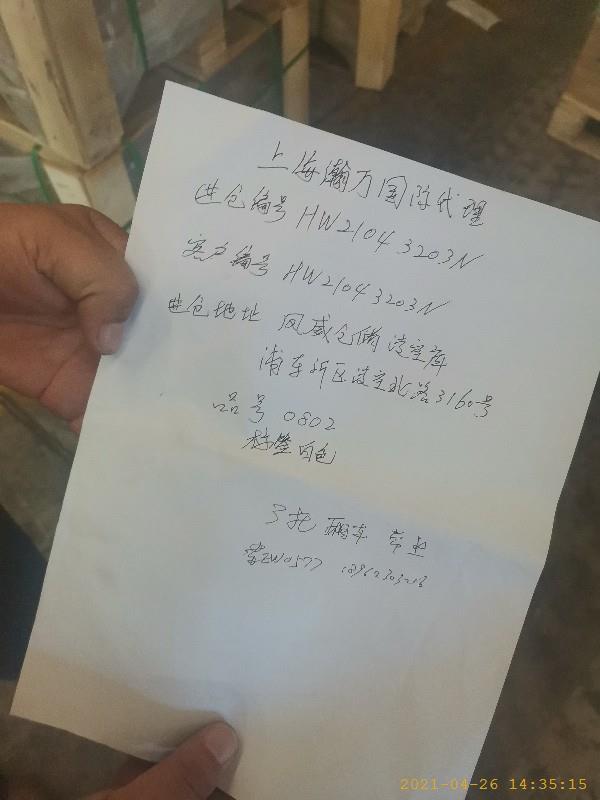 上海瀚万国际代理
进仓编号 HW21043203N
客户编号 HW21043203N
进仓地址 风威仓储凌空库
浦东新区凌空北路3160号
品号 0802
标签白色
3托
ZW0577
2021-04-26 14:35:15